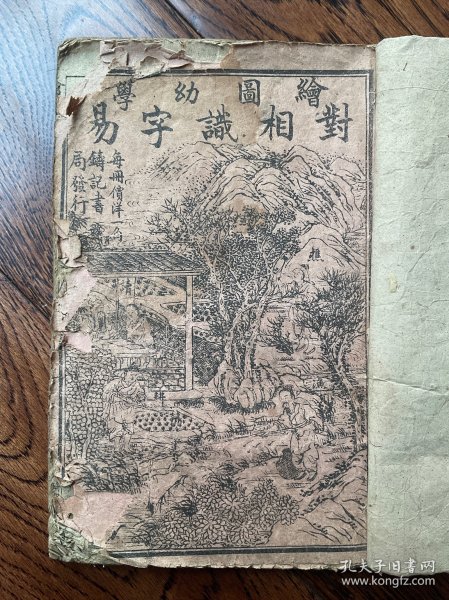 繪圖幼學
對相識字易
每冊價洋一角
鑄記書
局發行
樵
漁
耕
孔夫子旧书网
www.kongfz.com